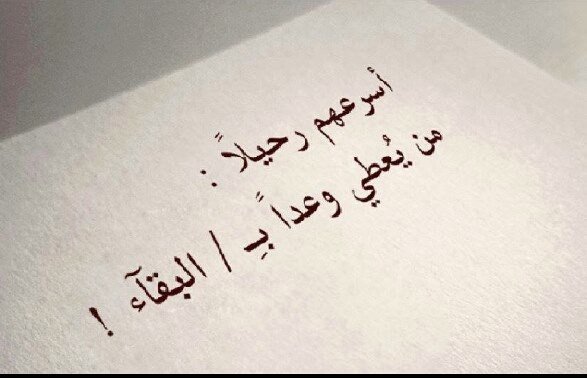 أسرعهم رحيلاً :
من يُعطي وعداً بِـ / البقآء !